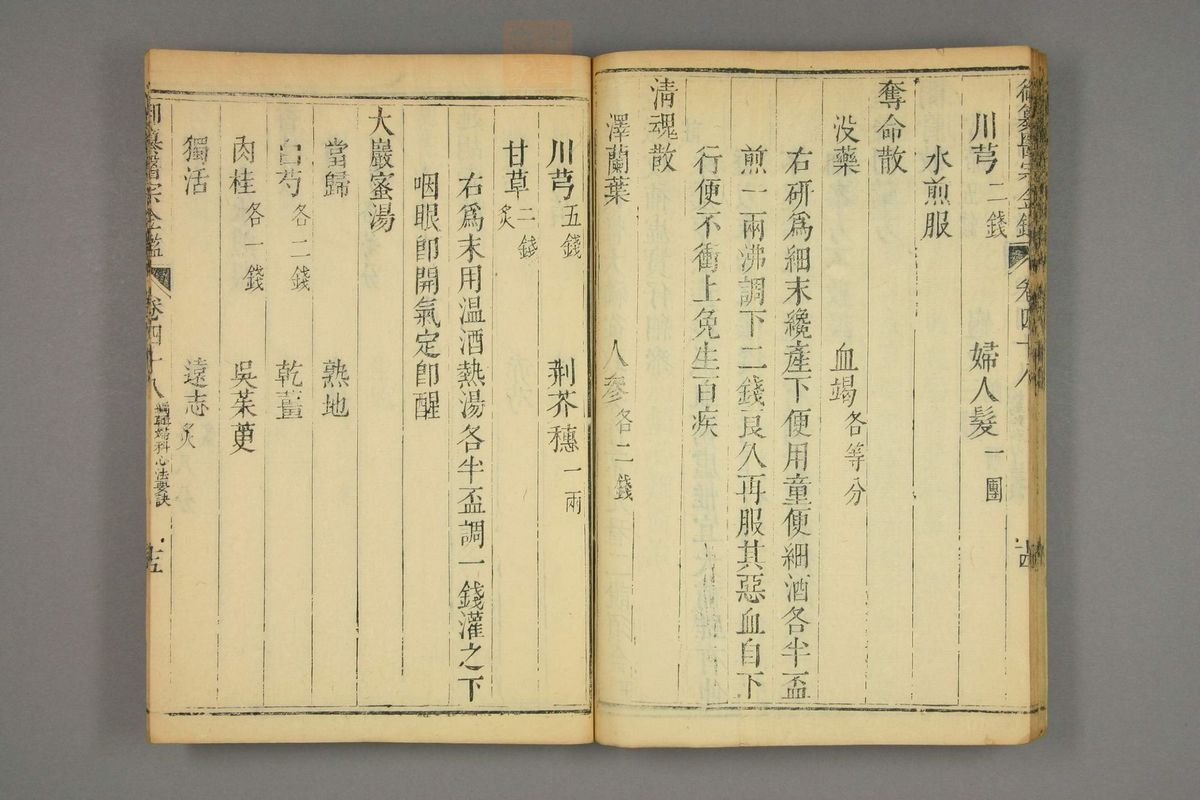 御纂醫宗金鑑 卷四十八 十四
川芎二錢 婦人髮一團
水煎服
奪命散
沒藥 血竭各等分
右研爲細末纔產下便用童便細酒各半盃
煎一兩沸調下二錢良久再服其惡血自下
行便不衝上免生百疾
清魂散
澤蘭葉 人參各二錢
川芎五錢 荆芥穗一兩
甘草二錢炙
右爲末用温酒熱湯各半盃調一錢灌之下
咽眼卽開氣定卽醒
大巖蜜湯
當歸 熟地
白芍各二錢 乾薑
肉桂各一錢 吳茱萸
獨活 遠志炙
御纂醫宗金鑑 卷四十八 編輯婦科心法要訣 十五